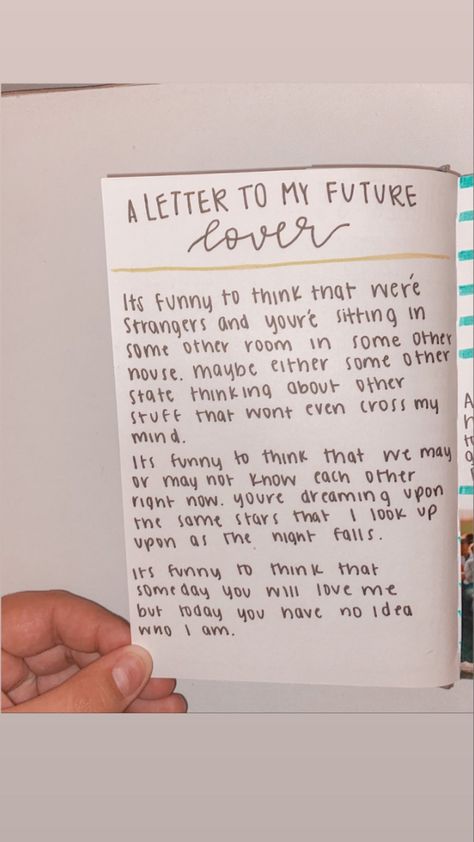 A LETTER TO MY FUTURE
lover
Its funny to think that we're
strangers and you're sitting in
some other room in some other
house. maybe either some other
state thinking about other
stuff that wont even cross my
mind.
Its funny to think that we may
or may not know each other
right now. youre dreaming upon
the same stars that I look up
upon as the night falls.
its funny to think that
someday you will love me
but today you have no idea
who I am.